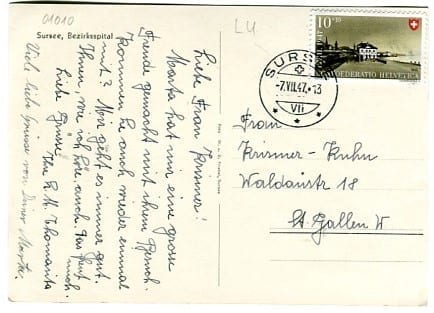 01010
Sursee, Bezirksspital
LU
Liebe Frau Krismer!
Marta hat mir eine grosse
Freude gemacht mit ihrem Besuch.
Kommen Sie auch wieder einmal
mit? Mir geht es immer gut.
Ihnen, wie ich höre, auch. Das freut
mich.
Liebe Grüsse!
Ihr
Viele liebe Grüsse von Ihrer Marta.
10+10
CONFOEDERATIO HELVETICA
SURSEE
-7.VII.47.-13
VII
Frau
Krismer-Kuhn
Waldaustr 18
St Gallen W